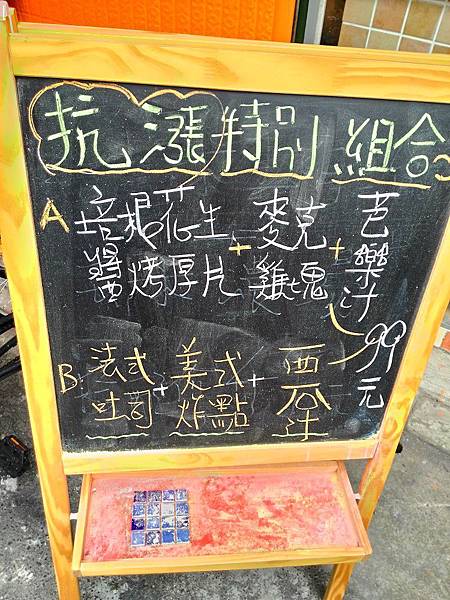 抗漲特別組合
A 培根花生醬烤厚片 + 麥克雞塊 + 芭樂汁
99元
B: 法式吐司 + 美式炸點 + 西瓜汁